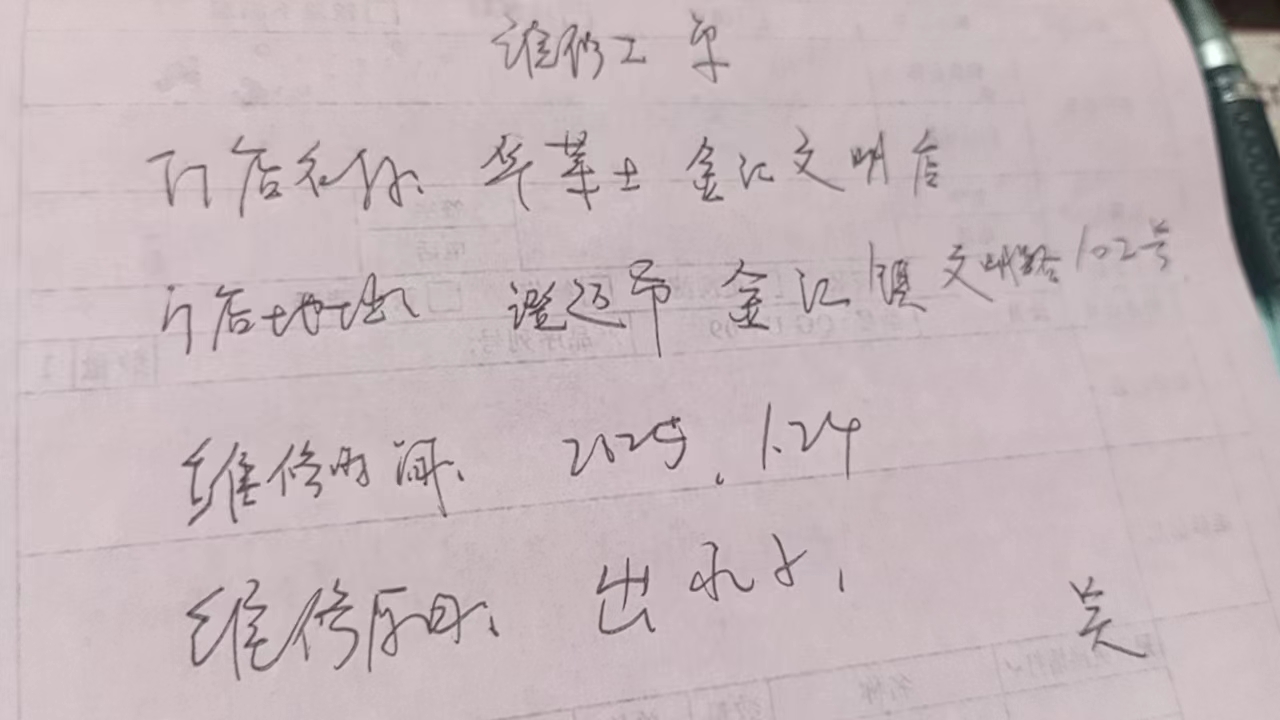 维修工单
门店名称: 华莱士 金江文明店
门店地址 澄迈县 金江镇 文明路102号
维修时间: 2025.1.24
维修原因: 出水小,